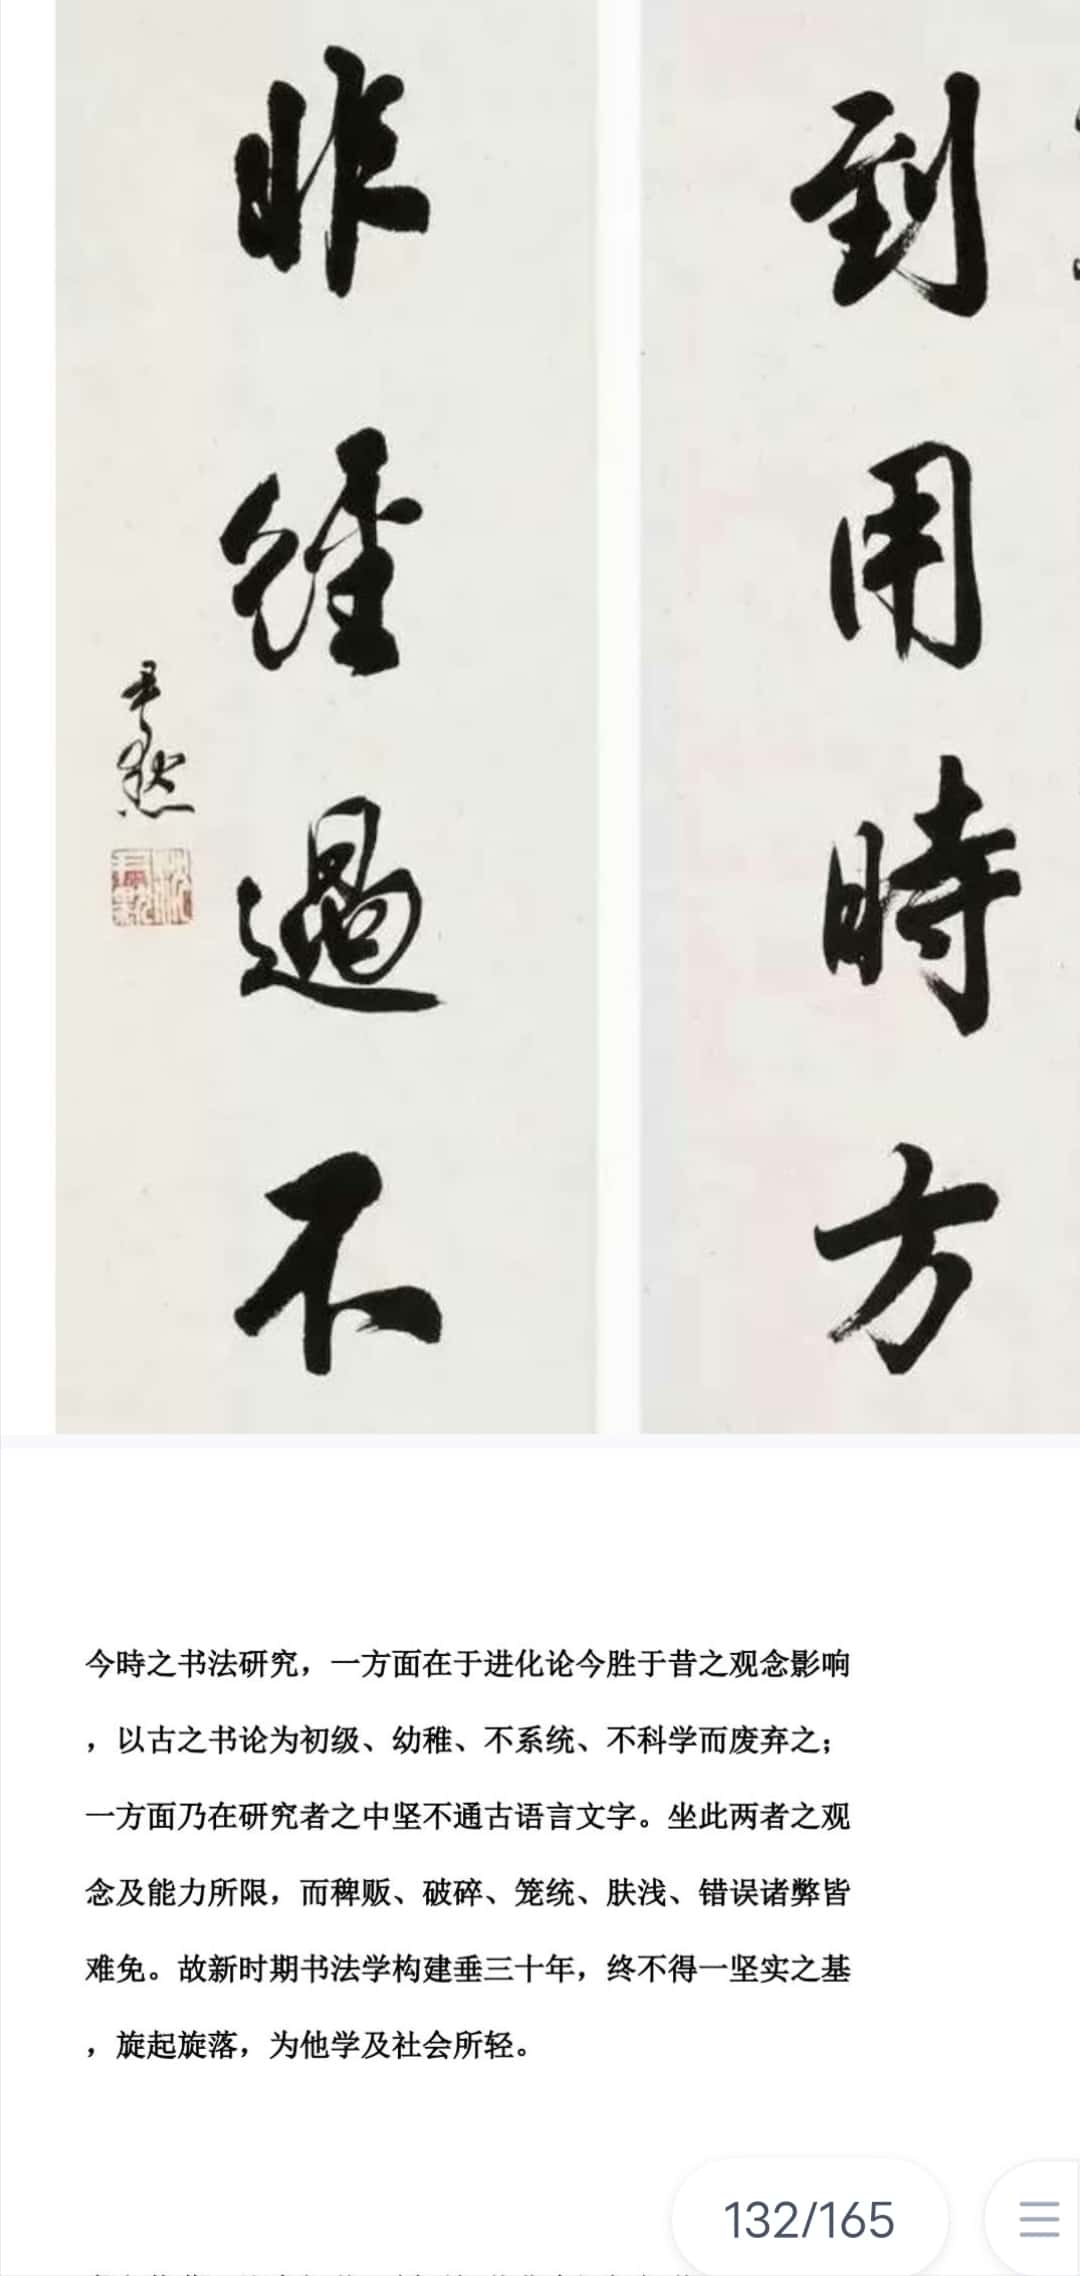 到用時方
非經過不
尹默
今時之书法研究，一方面在于进化论今胜于昔之观念影响
，以古之书论为初级、幼稚、不系统、不科学而废弃之；
一方面乃在研究者之中坚不通古语言文字。坐此两者之观
念及能力所限，而稗贩、破碎、笼统、肤浅、错误诸弊皆
难免。故新时期书法学构建垂三十年，终不得一坚实之基
，旋起旋落，为他学及社会所轻。
132/165